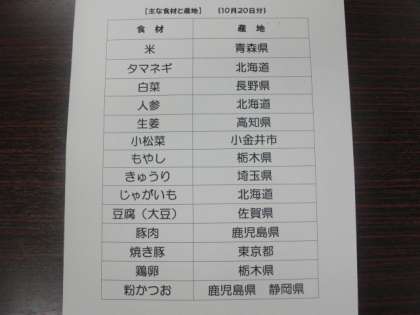 【主な食材と産地】　（10月20日分）
食　材　産　地
米　青森県
タマネギ　北海道
白菜　長野県
人参　北海道
生姜　高知県
小松菜　小金井市
もやし　栃木県
きゅうり　埼玉県
じゃがいも　北海道
豆腐（大豆）　佐賀県
豚肉　鹿児島県
焼き豚　東京都
鶏卵　栃木県
粉かつお　鹿児島県　静岡県